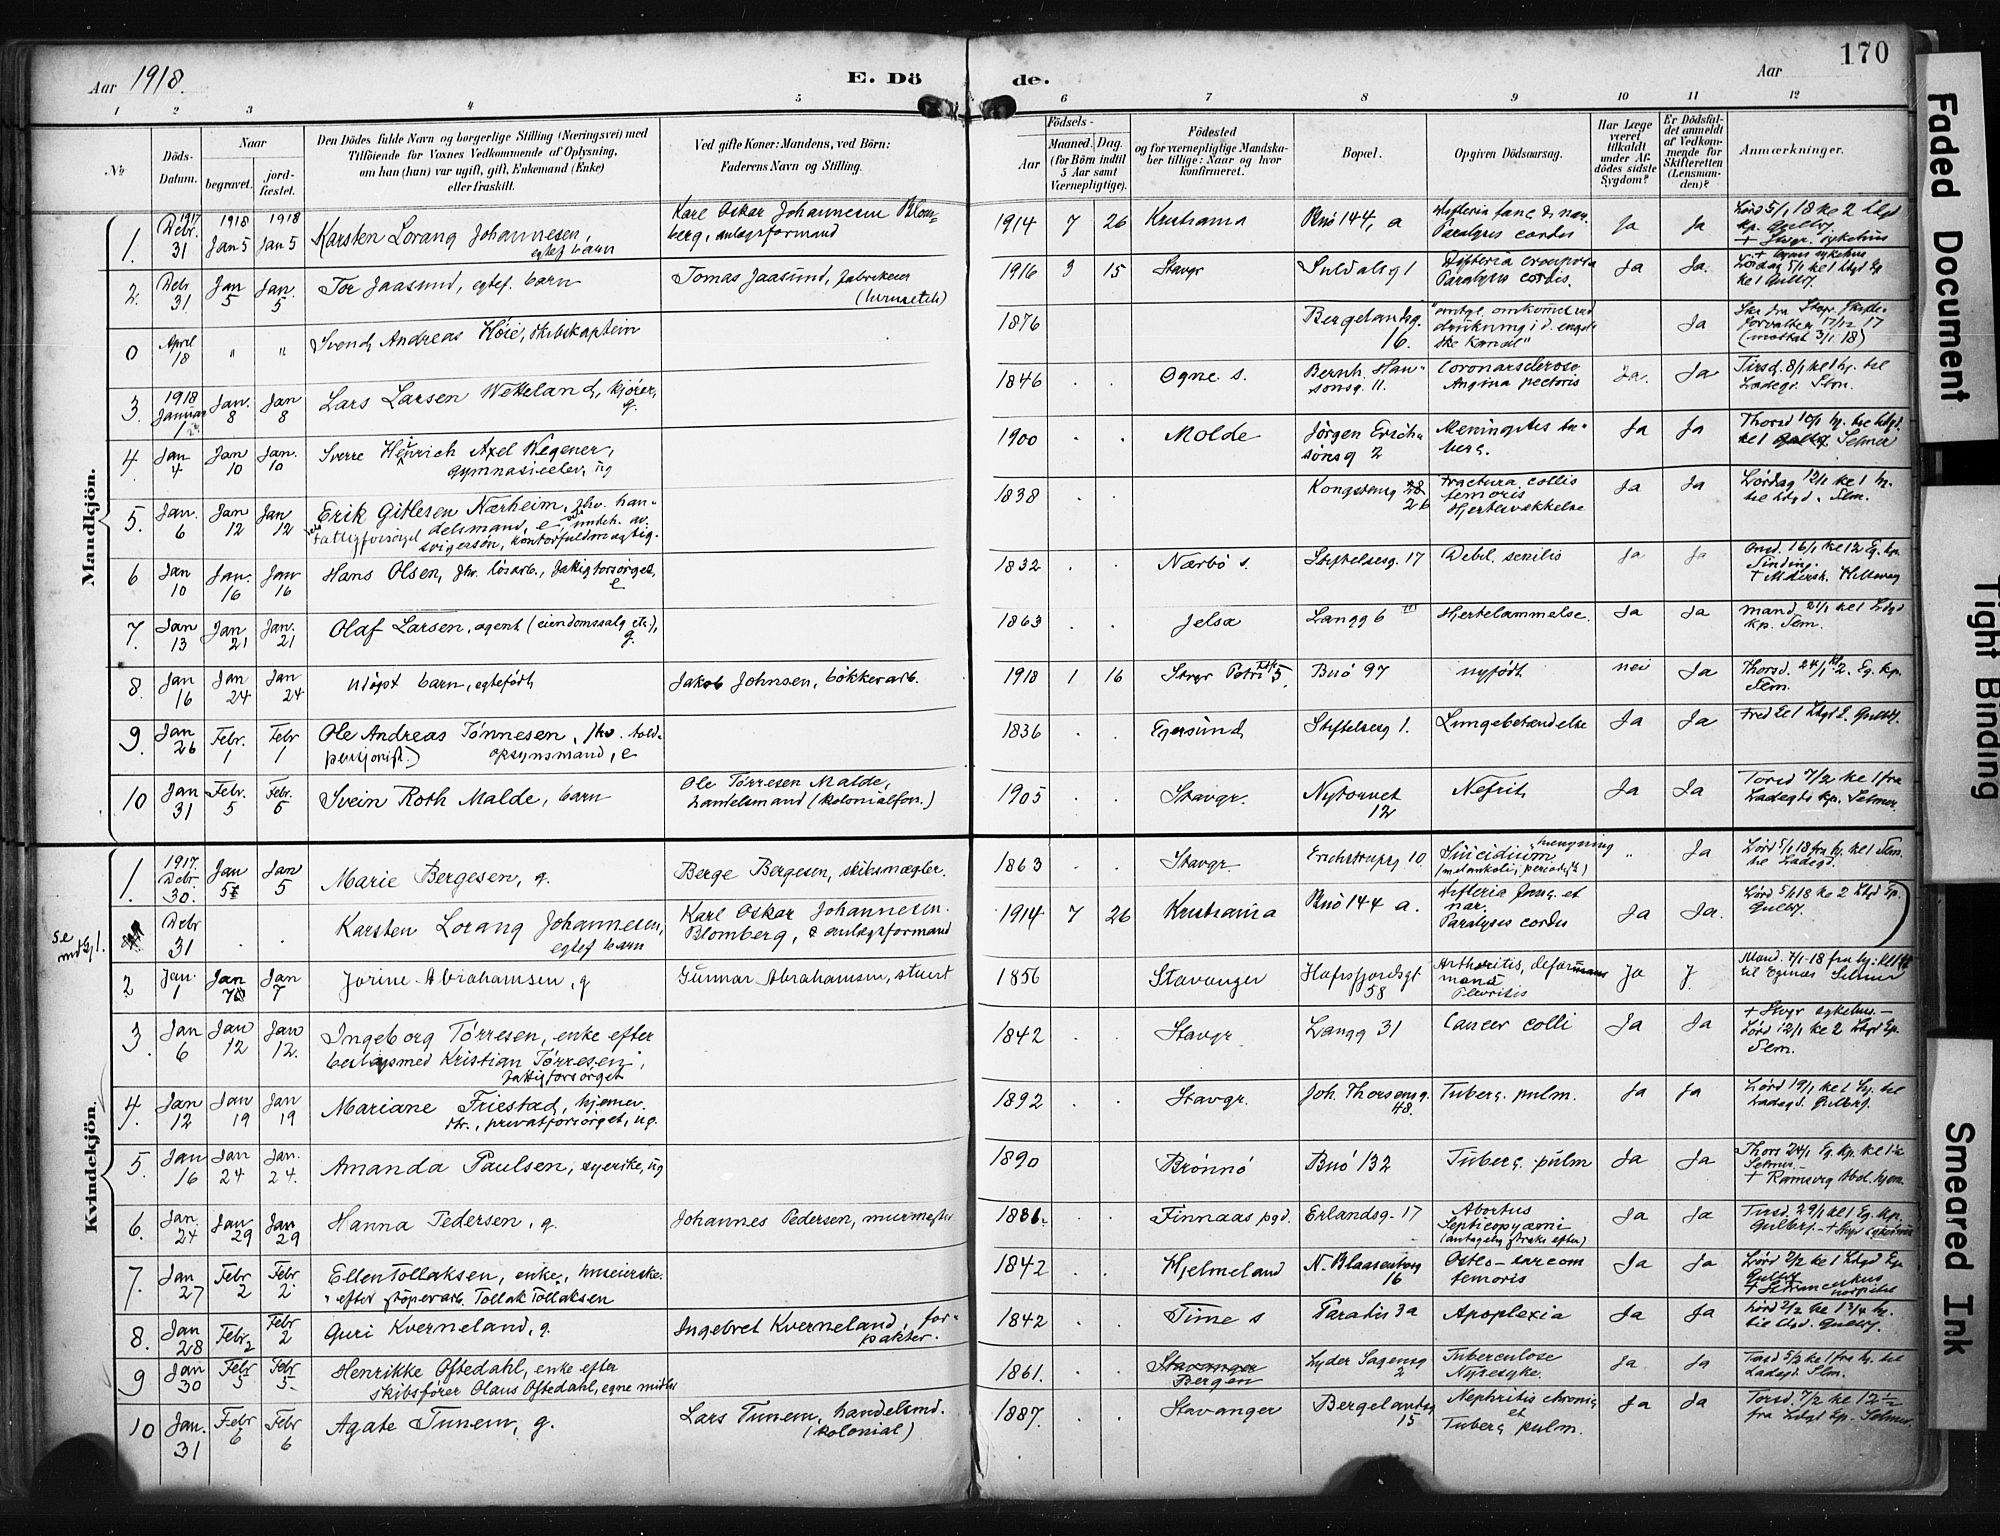 Aar 1918.
E. Dö de.
Aar
170
1 2 3 4 5 6 7 8 9 10 11 12
No
Döds-
Datum.
Naar
begravet.
jord-
fæstet.
Den Dödes fulde Navn og borgerlige Stilling (Næringsvei) med
Tilföiende for Voxnes Vedkommende af Oplysning,
om han (hun) var ugift, gift, Enkemand (Enke)
eller fraskilt.
Ved gifte Koner: Mandens, ved Börn:
Faderens Navn og Stilling.
Födsels-
Aar
Maaned. Dag.
(for Börn indtil
5 Aar samt
Værnepligtige).
Födested
og for værnepligtige Mandska-
ber tillige: Naar og hvor
konfirmeret.
Bopæl.
Opgiven Dödsaarsag.
Har Læge
været
tilkaldt
under Af-
dödes sidste
Sygdom?
Er Dödsfal-
det anmeldt
af Vedkom-
mende for
Skifteretten
(Lensman-
den)?
Anmærkninger.
Mandkjön.
1. 1917 Debr. 31 1918 Jan 5 1918 Jan 5 Karsten Lorang Johannesen, egtef barn
Karl Oskar Johannesen Blom-
berg, anlagsformand
1914 7 26 Kristiania Buö 144, a
Paralysis cordis
Ja Ja
Lörd 5/1 18 kl 2 Ldgd
kp. Gulbrf.
+ Stvgr. sykehus
2. Deb. 31 Jan 5 Jan. 5 Tor Jaasund, egtef. barn
Tomas Jaasund, fabrikeier
1916 3 15 Stavgr Suldalsg 1
Difteria crouposa
Paralysis cordis.
Ja Ja.
Lördag 5/1 kl 1 Ldgd kp
0 April 18 " " Svend Andreas Høie, skibskaptein
1876 Bergelandsg. 16.
"antgl. omkommet ved
drukning i d. engel-
ske Kanal"
Ja
(mottat 3/1 18)
3. 1918 Januar 1 Jan. 8 Jan 8 Lars Larsen Wetteland, kjører, g.
1846 . . Ogne s. Bernh. Han-
sonsg. 11.
Coronarsclerose
Angina pectoris
Ja. Ja
Tirsd. 8/1 kl 1 hj. til
Ladegr. Slm.
4. Jan 4 Jan 10 Jan. 10 Sverre Heinrich Axel Wegener,
gymnasieelev, ug
1900 . . Molde Jörgen Erich-
sönsg 2
Meningitis tu-
berc.
Ja Ja
Thorsd 10/1 hj. til Ldgd.
kl 1 Gulbrf. Selmer
5. Jan. 6 Jan 12 Jan 12 Erik Gitlesen Nærheim, fhv. han-
delsmand, e
svigersøn, kontorfuldmægtig.
1838 Kongsteng 28 26
Fractura collis
femoris
Hertesvekkelse
Ja Ja
Lördag 12/1 kl 1 hj.
til Ldgd. Slm.
6 Jan 10 Jan. 16 Jan 16 Hans Olsen, fhv. løsarb., fattigforsørget, e
1832 . . Nærbö s. Stiftelsesg. 17 Debil. senilis Ja Ja
Onsd. 16/1 kl 12 Eg. kp.
Sinding.
7. Jan 13 Jan. 21 Jan. 21 Olaf Larsen, agent (eiendomssalg etc.), g.
1863 . . Jelsa Langg 6 III Hertelammelse. Ja Ja
Mand. 21/1 kl 1 Ldgd
kp. Slm.
8. Jan 16 Jan 24 Jan 24 Udöpt barn, egtefödt
Jakob Johnsen, bökkerarb.
1918 1 16 Stvgr Petri 5. Buö 97 nyfödt nei Ja
Thorsd. 24/1 kl 2. Eg. kp.
Slm.
9. Jan 26 Febr. 1 Febr 1 Ole Andreas Tönnesen, fhv. told-
pensjonist.) opsynsmand, e
1836 Egersund Stiftelsesg 1. Lungebetændelse Ja Ja
Fred kl 1 Ldgd E. Gulbrf.
10 Jan 31 Febr. 5 Febr. 5 Svein Roth Malde, barn
Ole Törresen Malde,
handelsmand (kolonialforr.)
1905 . . Stavgr. Nytorvet 12 Nefrit Ja Ja
Torsd 7/2 kl 1 fra
Ladegds kp. Selmer.
Kvindekjön.
1. 1917. Debr. 30. Jan 5 Jan 5 Marie Bergesen, g.
Berge Bergesen, skibsmægler.
1863 . . Stavgr Erichstrupsg 10.
Suicidium, "hængning
(melankoli, periodisk)
" Ja
Lörd 5/1 18 fra hj. kl 1 Slm.
til Ladegd.
Se
mdkj 1.
Debr 31 . . Karsten Lorang Johannesen,
egtef barn
Karl Oskar Johannesen
Blomberg, anlagsformand
1914 7 26 Kristiania Buö 144 a.
Difteria faucs. et
nar.
Paralysis cordis
Ja Ja.
Lörd 5/1 18 kl 2 Ldgd kp.
Gulbrf.
2 Jan. 1 Jan 7 Jan 7 Jorine Abrahamsen, g
Gunnar Abrahamsen, stuert
1856 . . Stavanger Hafrsfjordsgt 58
Arthritis, deformans
Plevritis
Ja J.
Mand. 7/1-18 fra hj: kl 1
til Egenæs Selmer
3. Jan 6 Jan 12 Jan 12. Ingeborg Törresen, enke efter
beslagsmed Kristian Törresen,
fattigforsørget
1842 . . Stavgr Langg 31 Cancer colli Ja Ja
+ Stvgr sykehus. -
Lörd 12/1 kl 2 Ldgd kp.
Slm.
4. Jan 12 Jan 19 Jan 19 Mariane Friestad, hjemmev.
dtr., privatforsørget, ug.
1892 . . Stavgr. Joh. Thorsensg. 48. Tuberc. pulm. Ja Ja
Lörd 19/1 kl 1 hj. til
Ladegd. Gulbrf.
5. Jan 16 Jan 24 Jan. 24. Amanda Paulsen, syerske, ug
1890 Brönnö Buö 132 Tuberc. pulm Ja Ja
Thors 24/1 Eg. kp. kl 1 1/2
Selmer.
6. Jan. 24 Jan 29 Jan 29 Hanna Pedersen, g.
Johannes Pedersen, murmester
1881. . . Finnaas pgd. Erlandsg. 17
Abortus
Septicopyæmi
(antagelig straks efter)
Ja Ja
Tirsd. 29/1 kl 1 Eg. kp.
Gulbrf. - + Stvgr sykehus
7. Jan 27 Febr 2 Febr 2 Ellen Tollaksen, enke, meierske.
" efter støperarb. Tollak Tollaksen
1842 . . Hjelmeland N. Blaasenborg 16
Osteo-sarcom
femoris
Ja Ja
Lörd 2/2 kl 1 Ldgd kp
Gulbrf
8. Jan 28 Febr 2 Febr 2 Guri Kverneland, g.
Ingebret Kverneland, for-
pakter.
1842 . . Time s Paradis 3a Apoplexia Ja Ja
Lörd 2/2 kl 1 3/4 hj.
til Ldgd. Gulbrf.
9 Jan 30 Febr 5 Febr. 5. Henrikke Oftedahl, enke efter
skibsfører Olaus Oftedahl, egne midler
1861. . . Stavanger
Bergen
Lyder Sagensg 2
Tuberculose
Nyresyke.
Ja Ja
Tirsd 5/2 kl 1 fra hj. til
Ladegd. Slm.
10 Jan. 31 Febr 6 Febr 6 Agate Tunem, g.
Lars Tunem, handelsmd.
(kolonial)
1887. . . Stavanger Bergelandsg 15
Nephritis chronic,
et
Tuberc pulm.
Ja Ja
Torsd. 7/2 kl 12 1/2
fra Ldgd kp. Selmer.
Faded Document
Tight Binding
Smeared Ink